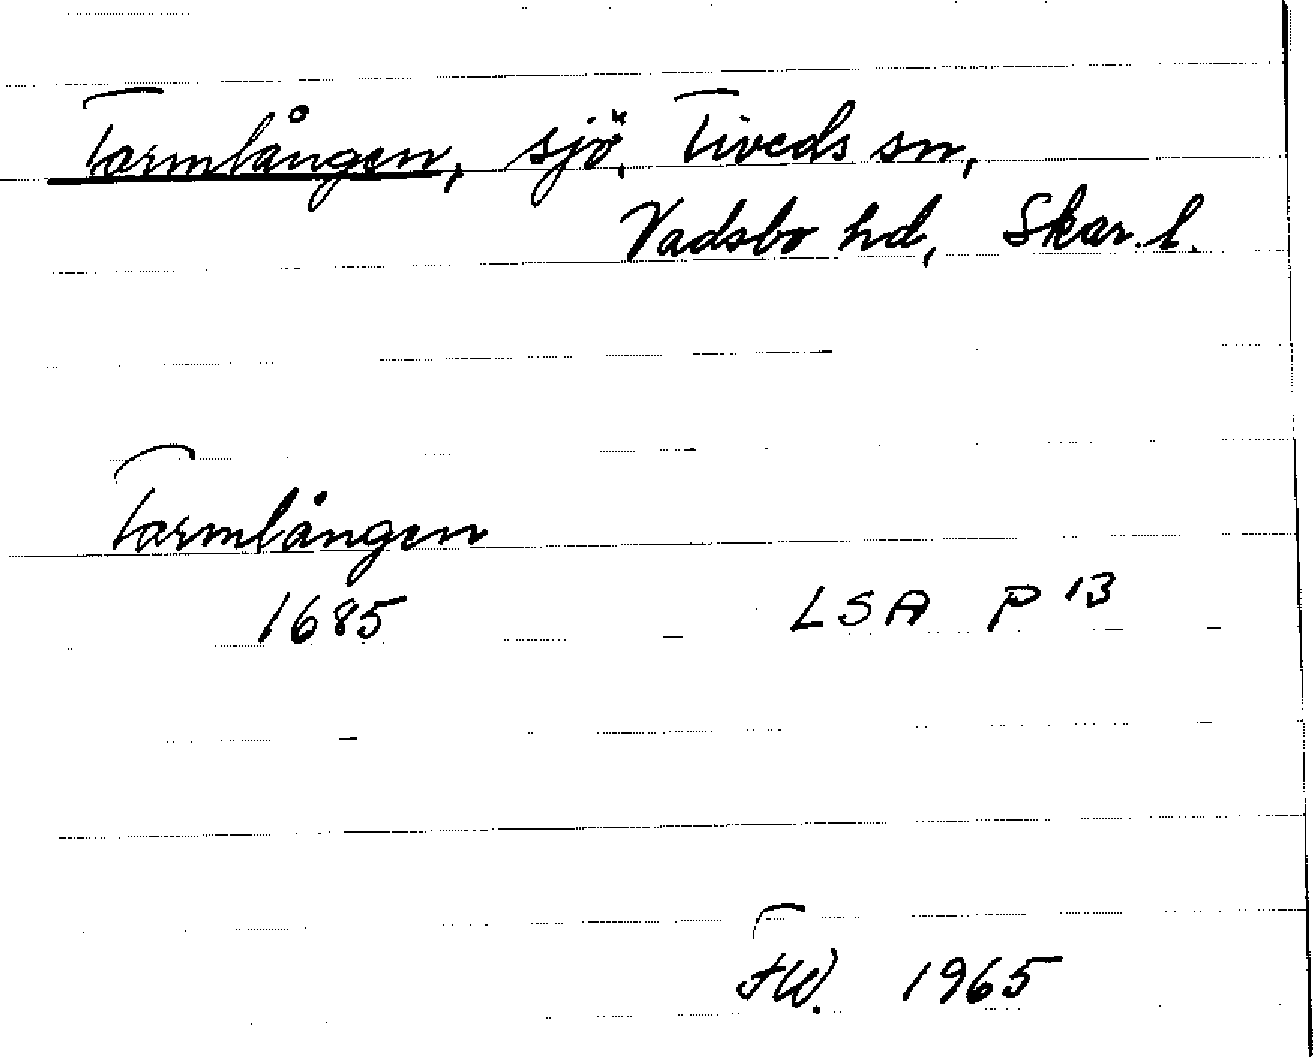 Tarmlången, sjö, Tiveds sn,
Vadsbo hd, Skar. l.
Tarmlången
1685 LSA P 13
FW. 1965